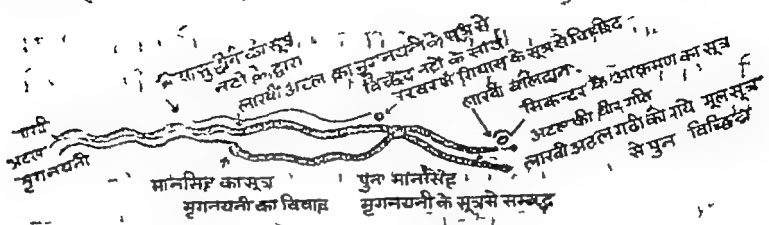 लाखी
अटल
मृगनयनी
का सूत्र
नटों के द्वारा
लाखी अटल का मृगनयनी के सूत्र से
विच्छेद नटों के साथ
नरवर में गियास के सूत्र से विच्छिन्न
लाखी बलिदान
सिकन्दर के आक्रमण का सूत्र
अटल की वीर गति
लाखी अटल गढी को गये मूल सूत्र
से पुन विच्छिन्न
मानसिंह का सूत्र
मृगनयनी का विवाह
पुन मानसिंह
मृगनयनी के सूत्र से सम्बद्ध